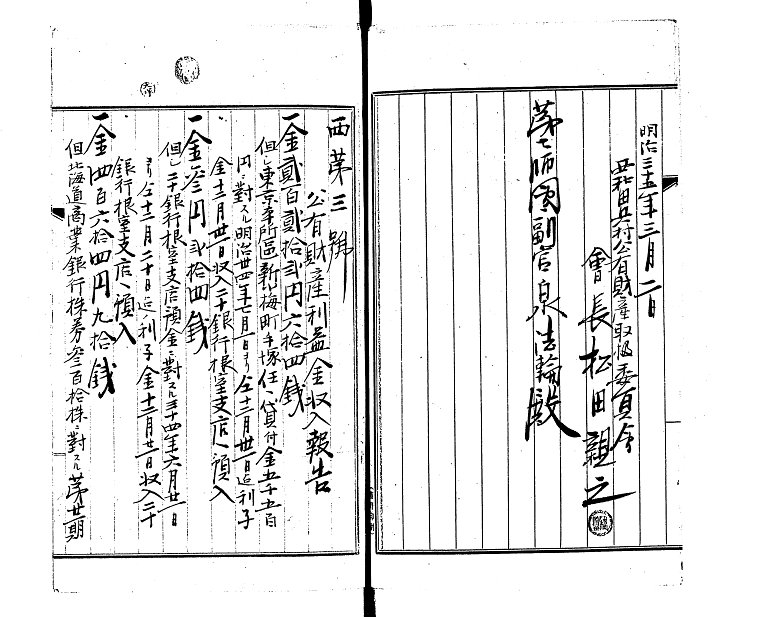 明治三十五年三月二日
和田外五村公有財産取扱委員会
會長 松田親之
第七師團副官 泉 生輪殿
西第三號
公有財産利益金収入報告
一金貳百貳拾弐円六拾四銭
但シ東京本所區新小梅町手塚任ヘ貸付金五千五百
円ニ對スル明治卅四年七月一日ヨリ仝十二月卅一日迄利子
金十二月卅一日収入二十銀行根室支店ヘ預入
一金参円弐拾四銭
但シ二十銀行根室支店預金ニ對スル三十四年六月廿一日
ヨリ仝十二月二十日迄ノ利子金十二月廿一日収入二十
銀行根室支店ヘ預入
一金四百六拾四円九拾銭
但北海道商業銀行株券参百拾株ニ對スル第廿期